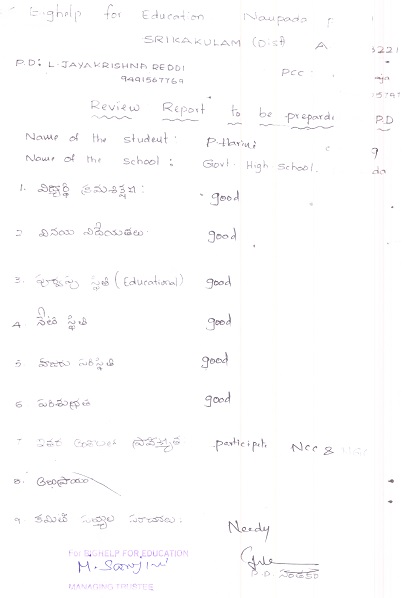 Eighelp for Education Naupada P
SRIKAKULAM (Dist) A
5221
P.D: L. JAYAKRISHNA REDDI PCC:
9491567769
Review Report to be prepared P.D
Name of the student: P. Harini
Name of the school: Govt. High School.
da
1. విద్యార్థి క్రమశిక్షణ: good
2 వినయ విధేయతలు good
3. పూర్వపు స్థితి (Educational) good
4 నేటి స్థితి good
5 good
6 పరిశుభ్రత good
7 ఇతర participate NCC &
8. అభిప్రాయం
9. కమిటి సభ్యుల సూచనలు. Needy
For EIGHELP FOR EDUCATION
M. Sanjini
MANAGING TRUSTEE P.D.